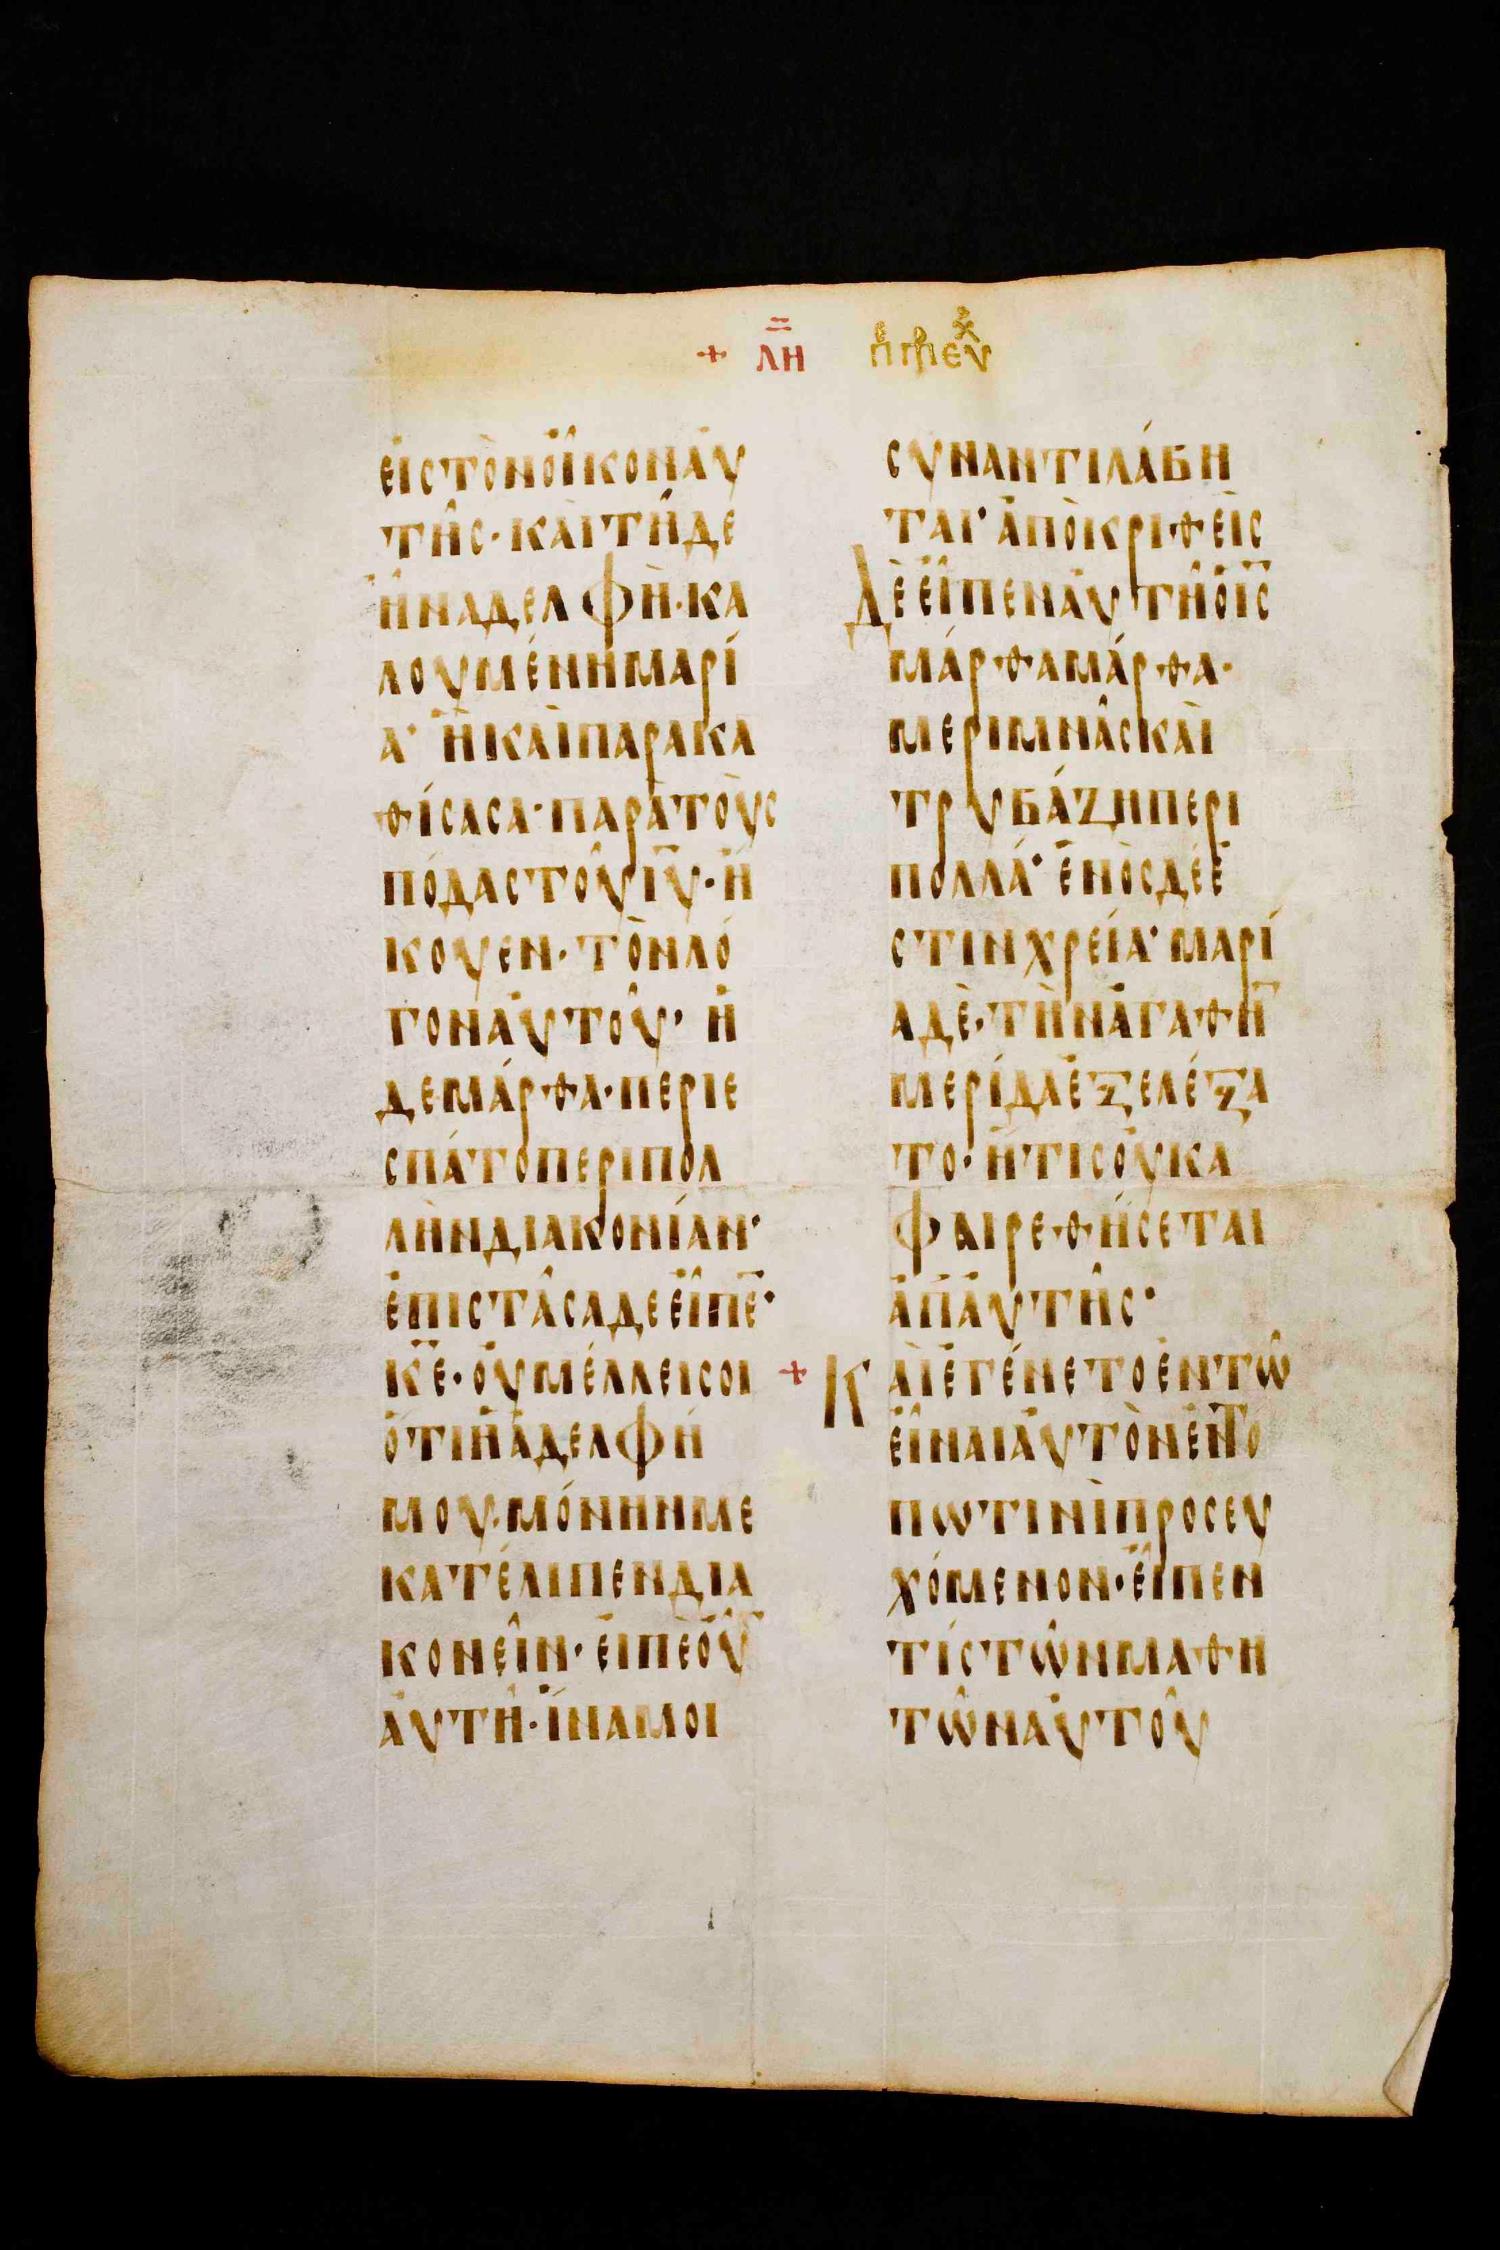 + ΛΗ
ΕἸΣΤῸΝΟἾΚΟΝΑΥ̓
ΤΗ͂Σ·ΚΑῚΤΗ͂ΔΕ
ἮΝΑΔΕΛΦῊ·ΚΑ
ΛΟΥΜΈΝΗΜΑΡΊ
Α· ἫΚΑῚΠΑΡΑΚΑ
ΘΊΣΑΣΑ·ΠΑΡᾺΤΟῪΣ
ΠΌΔΑΣΤΟΥ͂ΙΥ̅·Ἤ
ΚΟΥΕΝ·ΤῸΝΛΌ
ΓΟΝΑΥ̓ΤΟΥ͂· Ἡ
ΔΕΜΆΡΘΑ·ΠΕΡΙΕ
ΣΠΆΤΟΠΕΡΙΠΟΛ
ΛῊΝΔΙΑΚΟΝΊΑΝ·
ἘΠΙΣΤΑ͂ΣΑΔΕΕἾΠΕ̅·
Κ̅Ε̅·ΟΥ̓ΜΈΛΛΕΙΣΟΙ
ὍΤΙἩἈΔΕΛΦΉ
ΜΟΥ·ΜΌΝΗΝΜΕ
ΚΑΤΈΛΙΠΕΝΔΙΑ
ΚΟΝΕΙ͂Ν·ΕἸΠΈΟΥ̓͂
ΑΥ̓ΤΗ͂·ἽΝΑΜΟΙ
ΣΥΝΑΝΤΙΛΆΒΗ
ΤΑΙ· ἈΠΟΚΡΙΘΕῚΣ
ΔῈΕἾΠΕΝΑΥ̓ΤΗ͂ὉΙ̅Σ̅
ΜΆΡΘΑΜΆΡΘΑ·
ΜΕΡΙΜΝΑ͂ΣΚΑῚ
ΤΡΥΒΆΖΗΠΕΡΙ
ΠΟΛΛΆ· ἙΝῸΣΔΈἘ
ΣΤΙΝΧΡΕΊΑ· ΜΑΡΊ
ΑΔῈ·ΤῊΝἈΓΑΘΗ̅
ΜΕΡΊΔΑἘΞΕΛΈΞΑ
ΤΟ·ἭΤΙΣΟΥ̓ΚΑ
ΦΑΙΡΕΘΉΣΕΤΑΙ
ἈΠἈΥΤΗ͂Σ·
+ ΚΑῚἘΓΈΝΕΤΟἘΝΤΩ͂
ΕἾΝΑΙΑΥ̓ΤῸΝἘΝΤΌ
ΠΩΤΙΝῚΠΡΟΣΕΥ
ΧΌΜΕΝΟΝ·ΕἾΠΕΝ
ΤΊΣΤΩ͂ΝΜΑΘΗ
ΤΩ͂ΝΑΥ̓ΤΟΥ͂